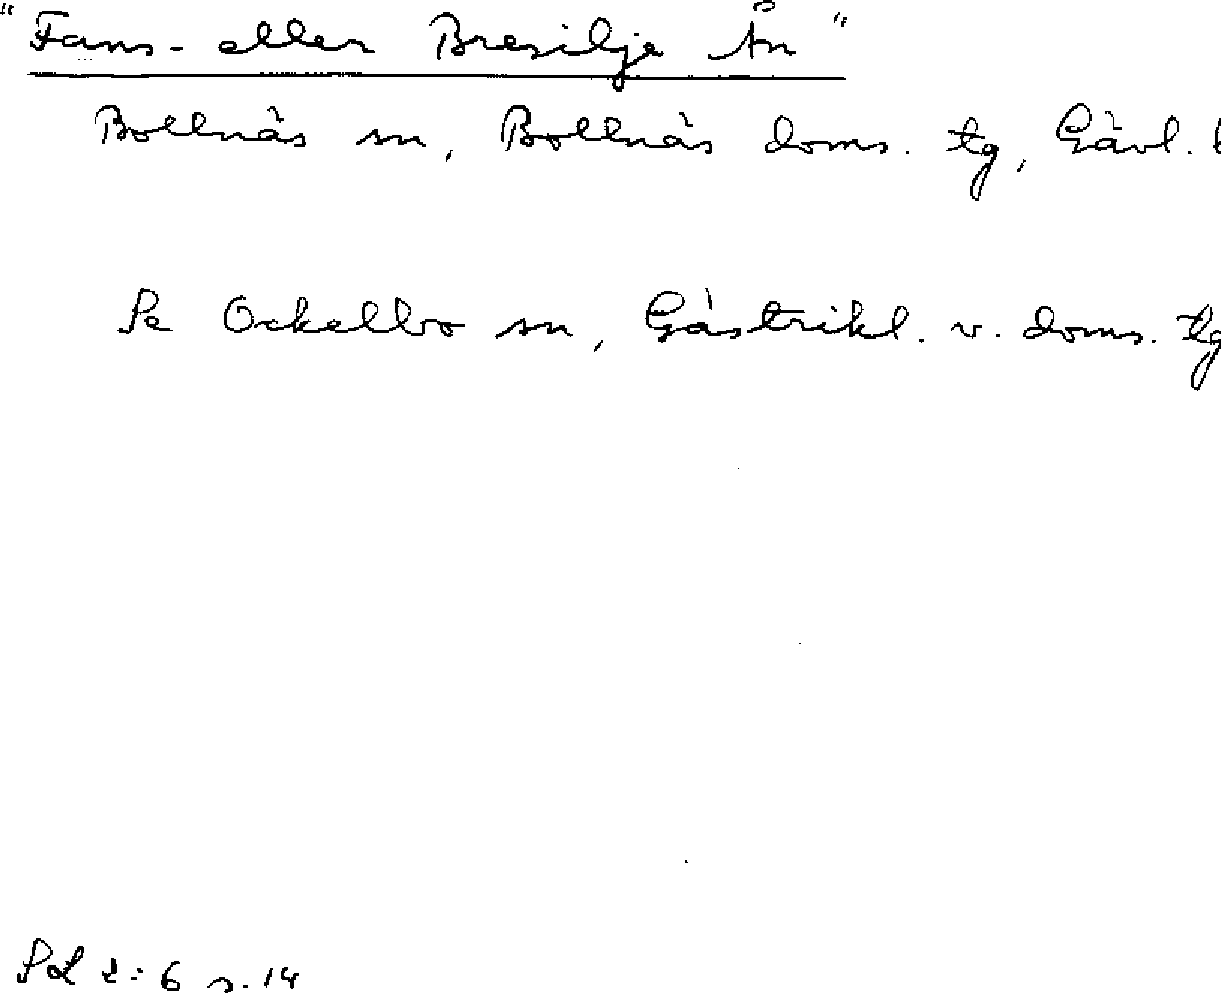 "Fans- eller Bresilje Ån"
Bollnäs sn, Bollnäs doms. tg, Gävl. l
Se Ockelbo sn, Gästrikl. v. doms. tg
Sd 2:6 s. 14